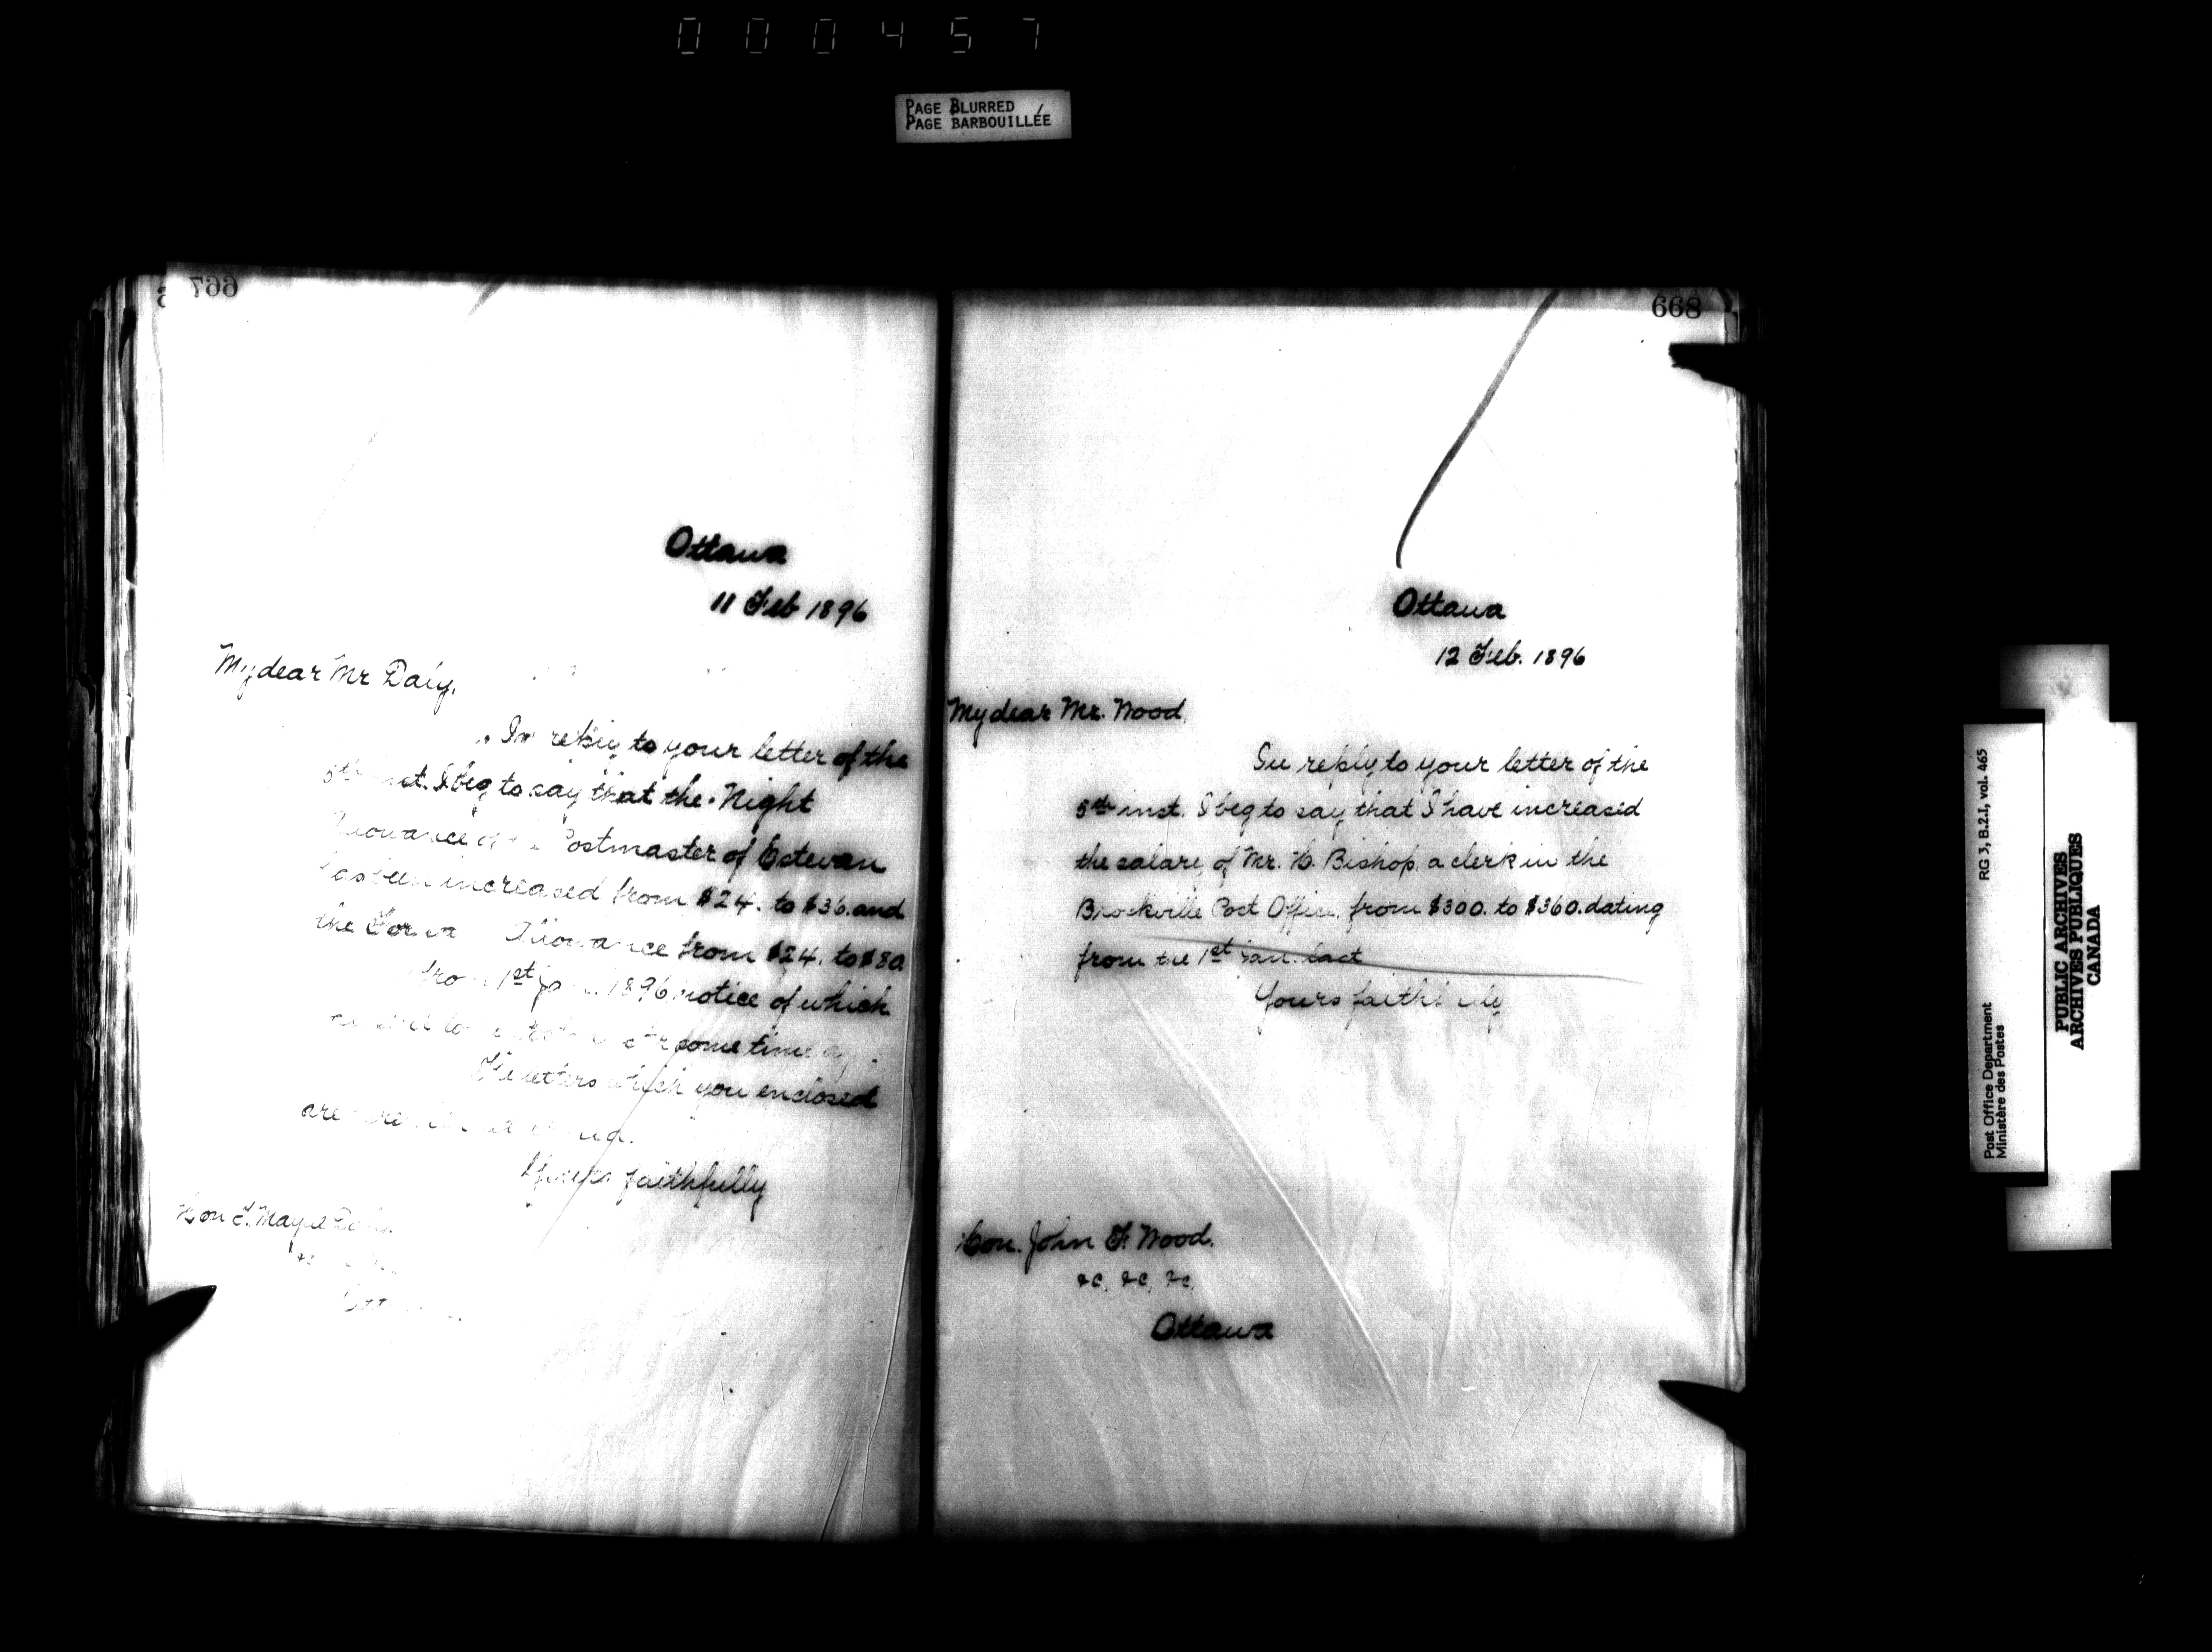 000457
PAGE BLURRED
PAGE BARBOUILLÉE
667
Ottawa
11 Feb 1896
My dear Mr Daly,
In reply to your letter of the
5th inst. I beg to say that the Night
Allowance Postmaster of Estevan
has been increased from $24. to $36. and
the Forward Allowance from $24. to $80
from 1st Jan. 1896 notice of which
some time
The letters which you enclosed
are
Yours faithfully
Hon T. Mayne Daly
Ottawa
668
Ottawa
12 Feb. 1896
My dear Mr. Wood,
In reply to your letter of the
5th inst. I beg to say that I have increased
the salary of Mr. H. Bishop, a clerk in the
Brockville Post Office, from $300. to $360. dating
from the 1st Jan. last
Yours faithfully
Hon. John F. Wood.
&c, &c, &c,
Ottawa
Post Office Department
Ministère des Postes
RG 3, B.2.1, vol. 465
PUBLIC ARCHIVES
ARCHIVES PUBLIQUES
CANADA